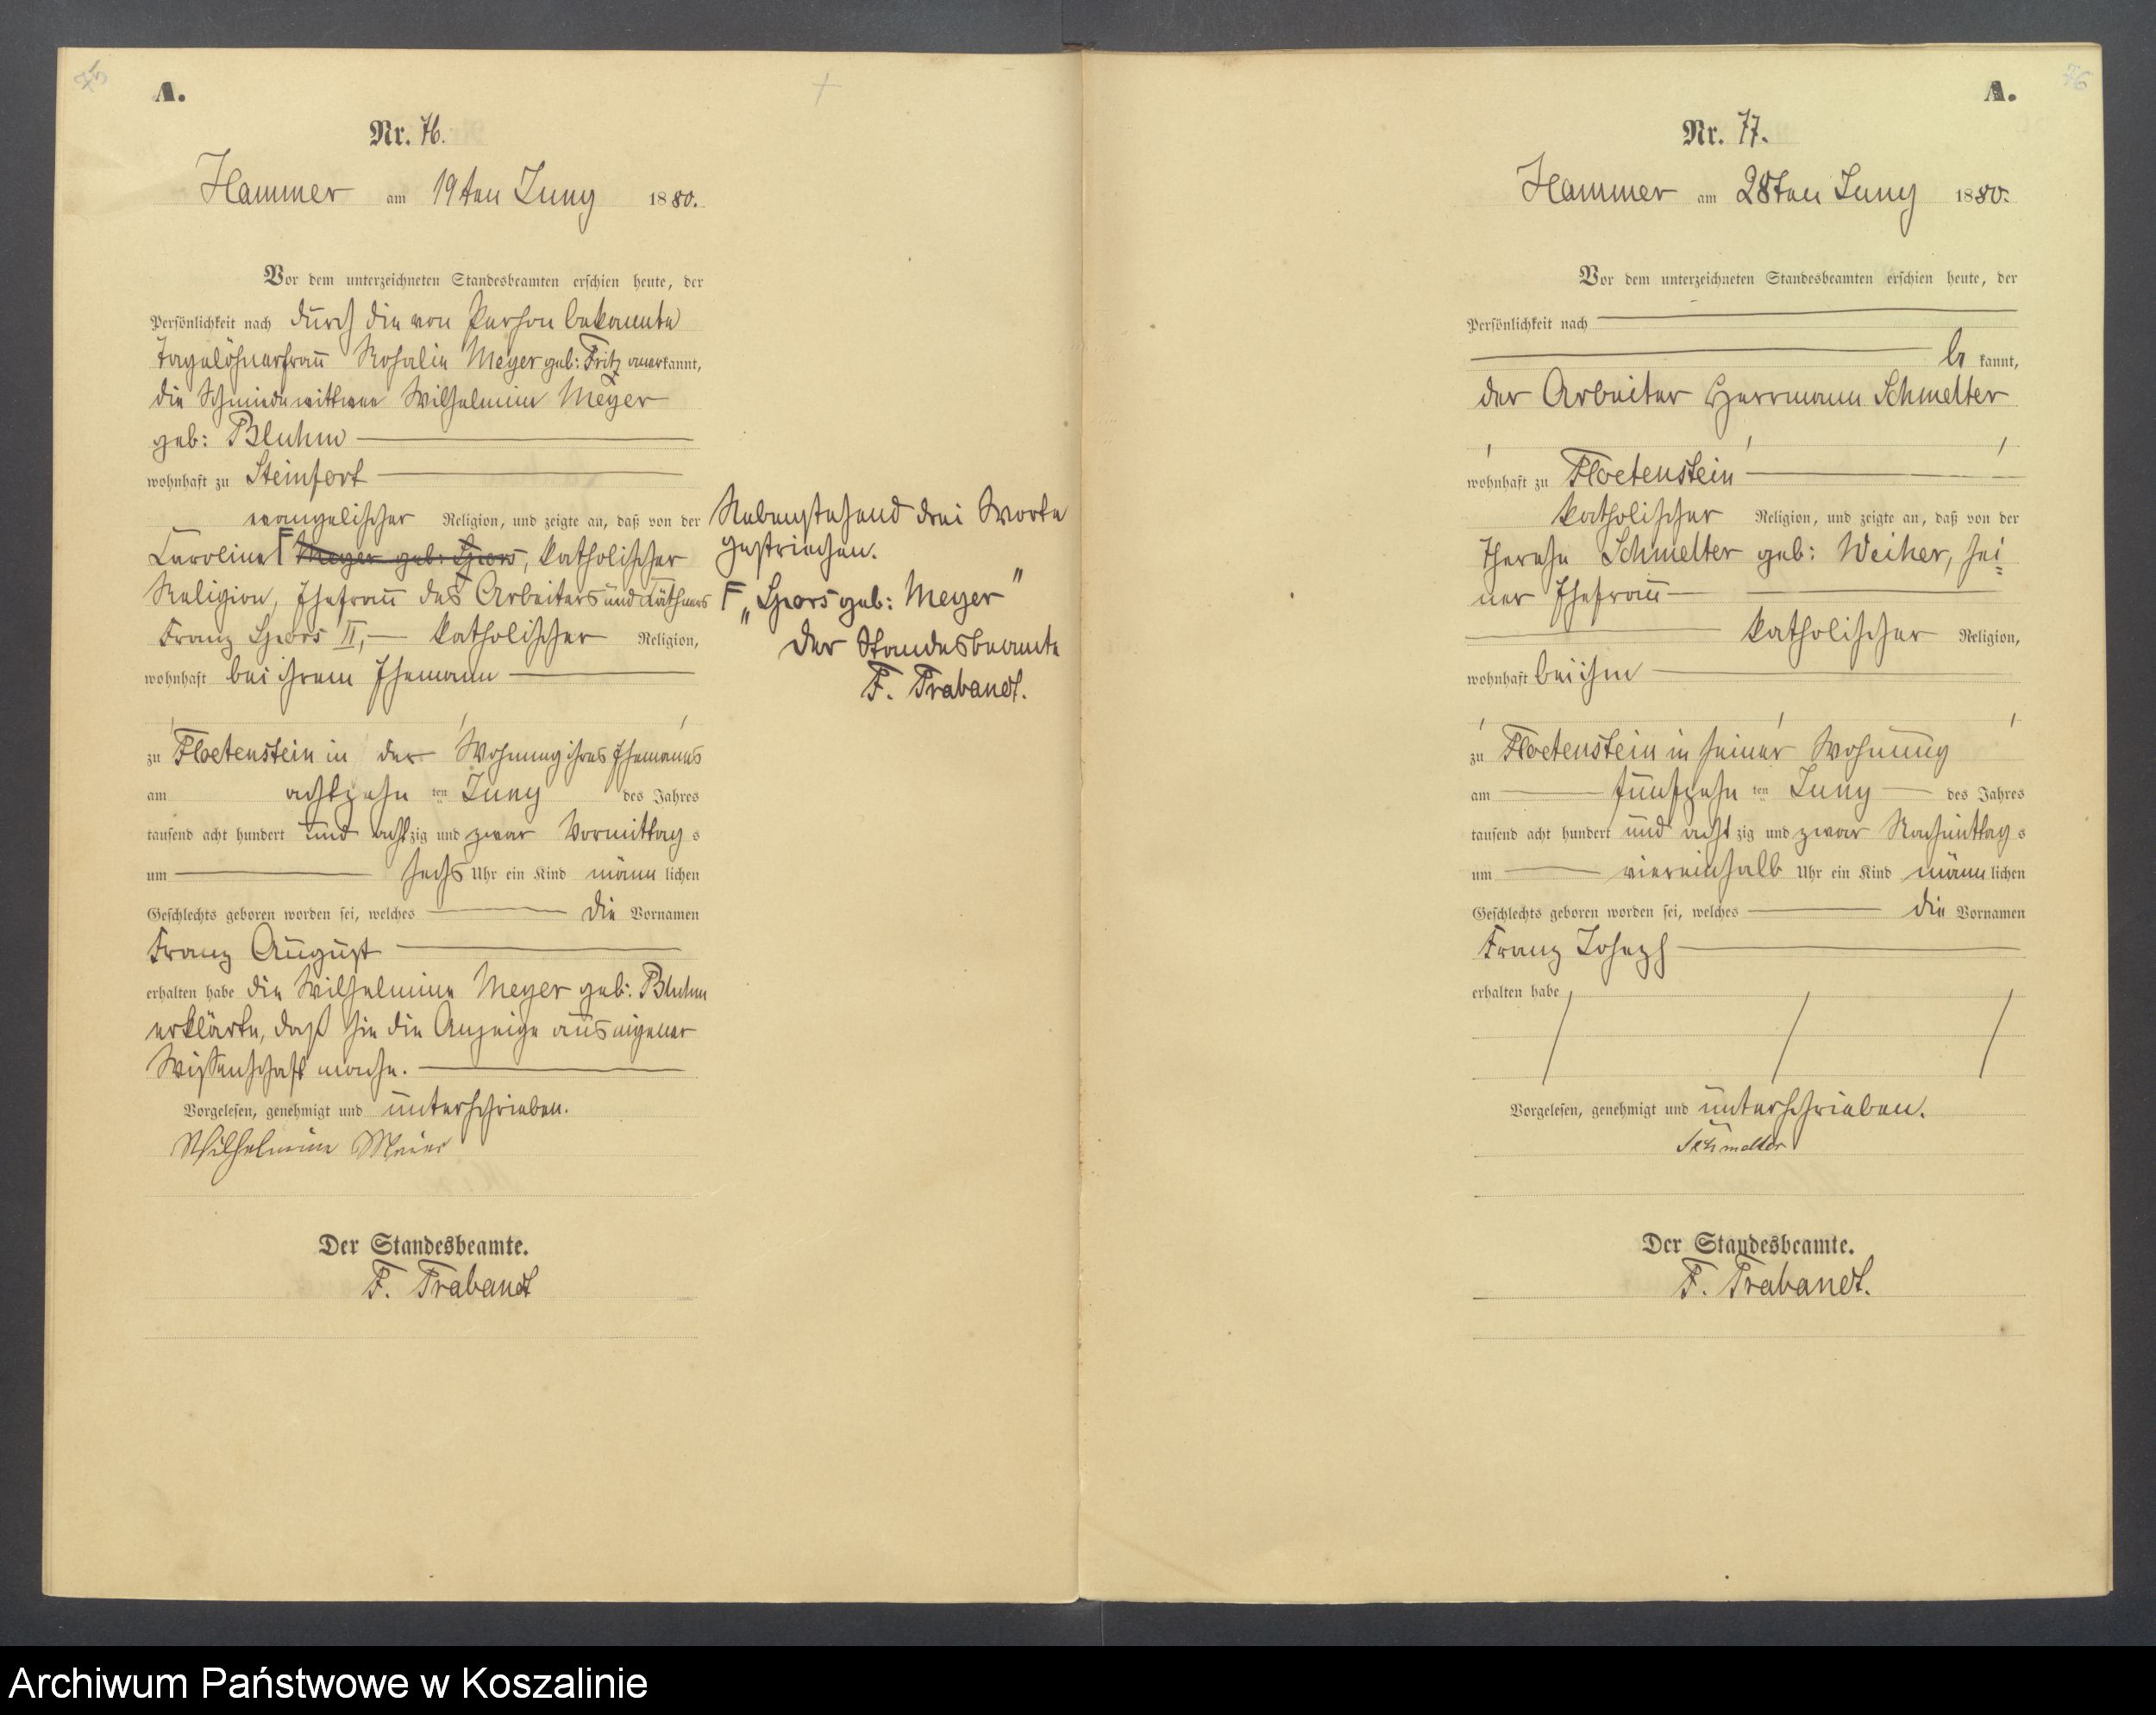 75
A.
Nr. 76.
Hammer am 19ten Juny 1880.
Vor dem unterzeichneten Standesbeamten erschien heute, der
Persönlichkeit nach durch die von Person bekannte
Tagelöhnerfrau Rosalie Meyer geb: Fritz anerkannt,
die Schmiedewittwe Wilhelmine Meyer
geb: Bluhm
wohnhaft zu Steinfort
evangelischer Religion, und zeigte an, daß von der
Caroline F Meyer geb: Spors, katholischer
Religion, Ehefrau des Arbeiters und Käthners
Franz Spors II, katholischer Religion,
wohnhaft bei ihrem Ehemann
zu Floetenstein in der Wohnung ihres Ehemanns
am achtzehn ten Juny des Jahres
tausend acht hundert und achtzig und zwar Vormittags
um sechs Uhr ein Kind männlichen
Geschlechts geboren worden sei, welches die Vornamen
Franz August
erhalten habe die Wilhelmine Meyer geb: Bluhm
erklärte, daß sie die Anzeige aus eigener
Wissenschaft mache.
Vorgelesen, genehmigt und unterschrieben.
Wilhelmine Meier
Der Standesbeamte.
F. Trabandt
Nebenstehend drei Worte
gestrichen.
F „Spors geb: Meyer"
Der Standesbeamte
F. Trabandt.
76
A.
Nr. 77.
Hammer am 28ten Juny 1880.
Vor dem unterzeichneten Standesbeamten erschien heute, der
Persönlichkeit nach
be kannt,
der Arbeiter Herrmann Schmelter
wohnhaft zu Floetenstein
katholischer Religion, und zeigte an, daß von der
Therese Schmelter geb: Weiher, sei=
ner Ehefrau
katholischer Religion,
wohnhaft bei ihm
zu Floetenstein in seiner Wohnung
am fünfzehn ten Juny des Jahres
tausend acht hundert und achtzig und zwar Nachmittags
um viereinhalb Uhr ein Kind männlichen
Geschlechts geboren worden sei, welches die Vornamen
Franz Joseph
erhalten habe
Vorgelesen, genehmigt und unterschrieben.
Schmelter
Der Standesbeamte.
F. Trabandt.
Archiwum Państwowe w Koszalinie